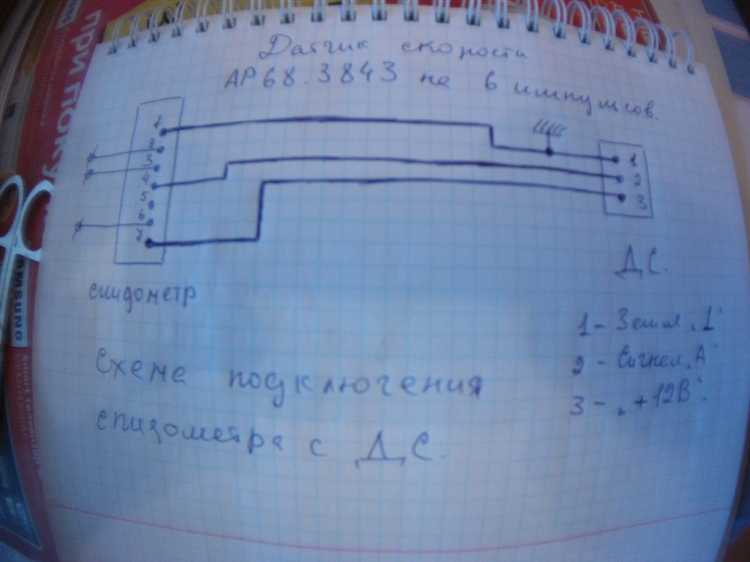 Датчик скорости
АР68.3843 на 6 импульсов.
1
2
3
4
5
6
7
1
2
3
спидометр
Д.С.
1 - Земля „⊥"
2 - Сигнал „А"
3 - „+12В".
Схема подключения
спидометра с Д.С.
при поку
SAMSUNG